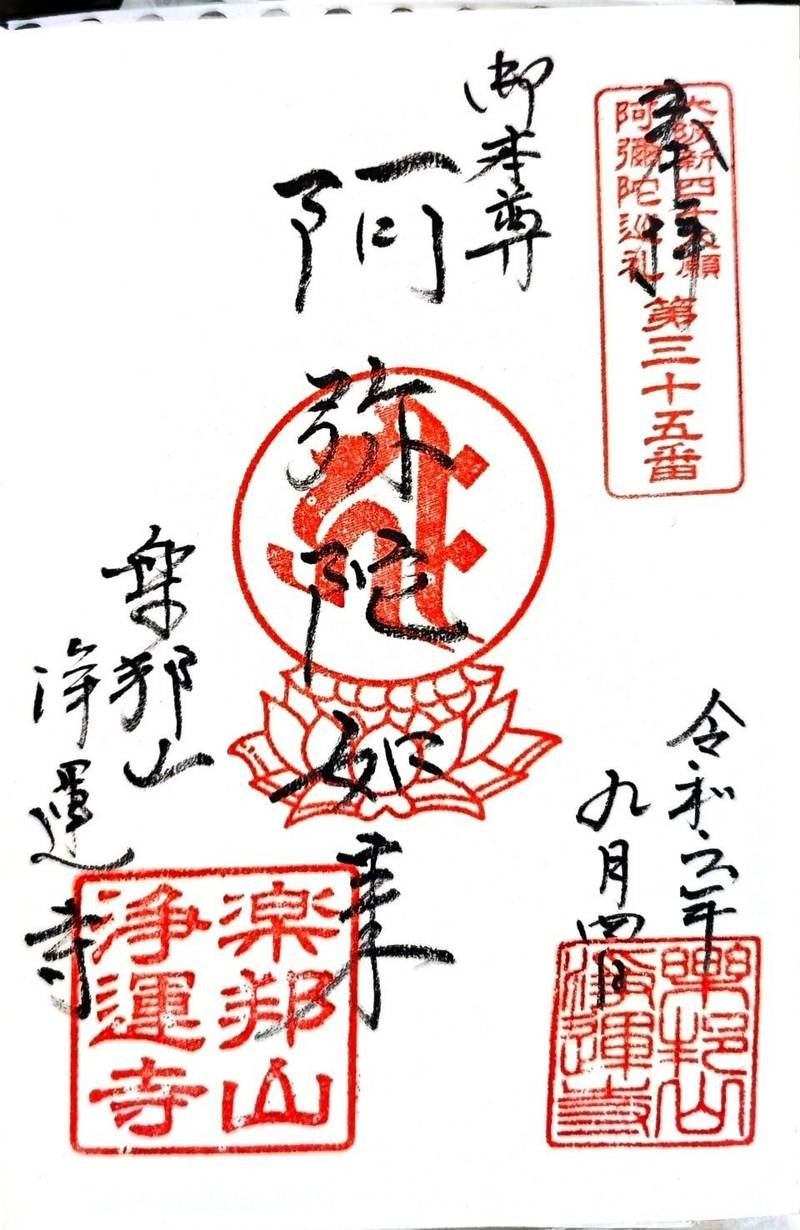 奉拝
大阪新四十八願
阿彌陀巡礼
第三十五番
令和六年
九月四日
樂邦山
浄運寺
御本尊
阿弥陀如来
楽邦山
浄運寺
楽邦山
浄運寺